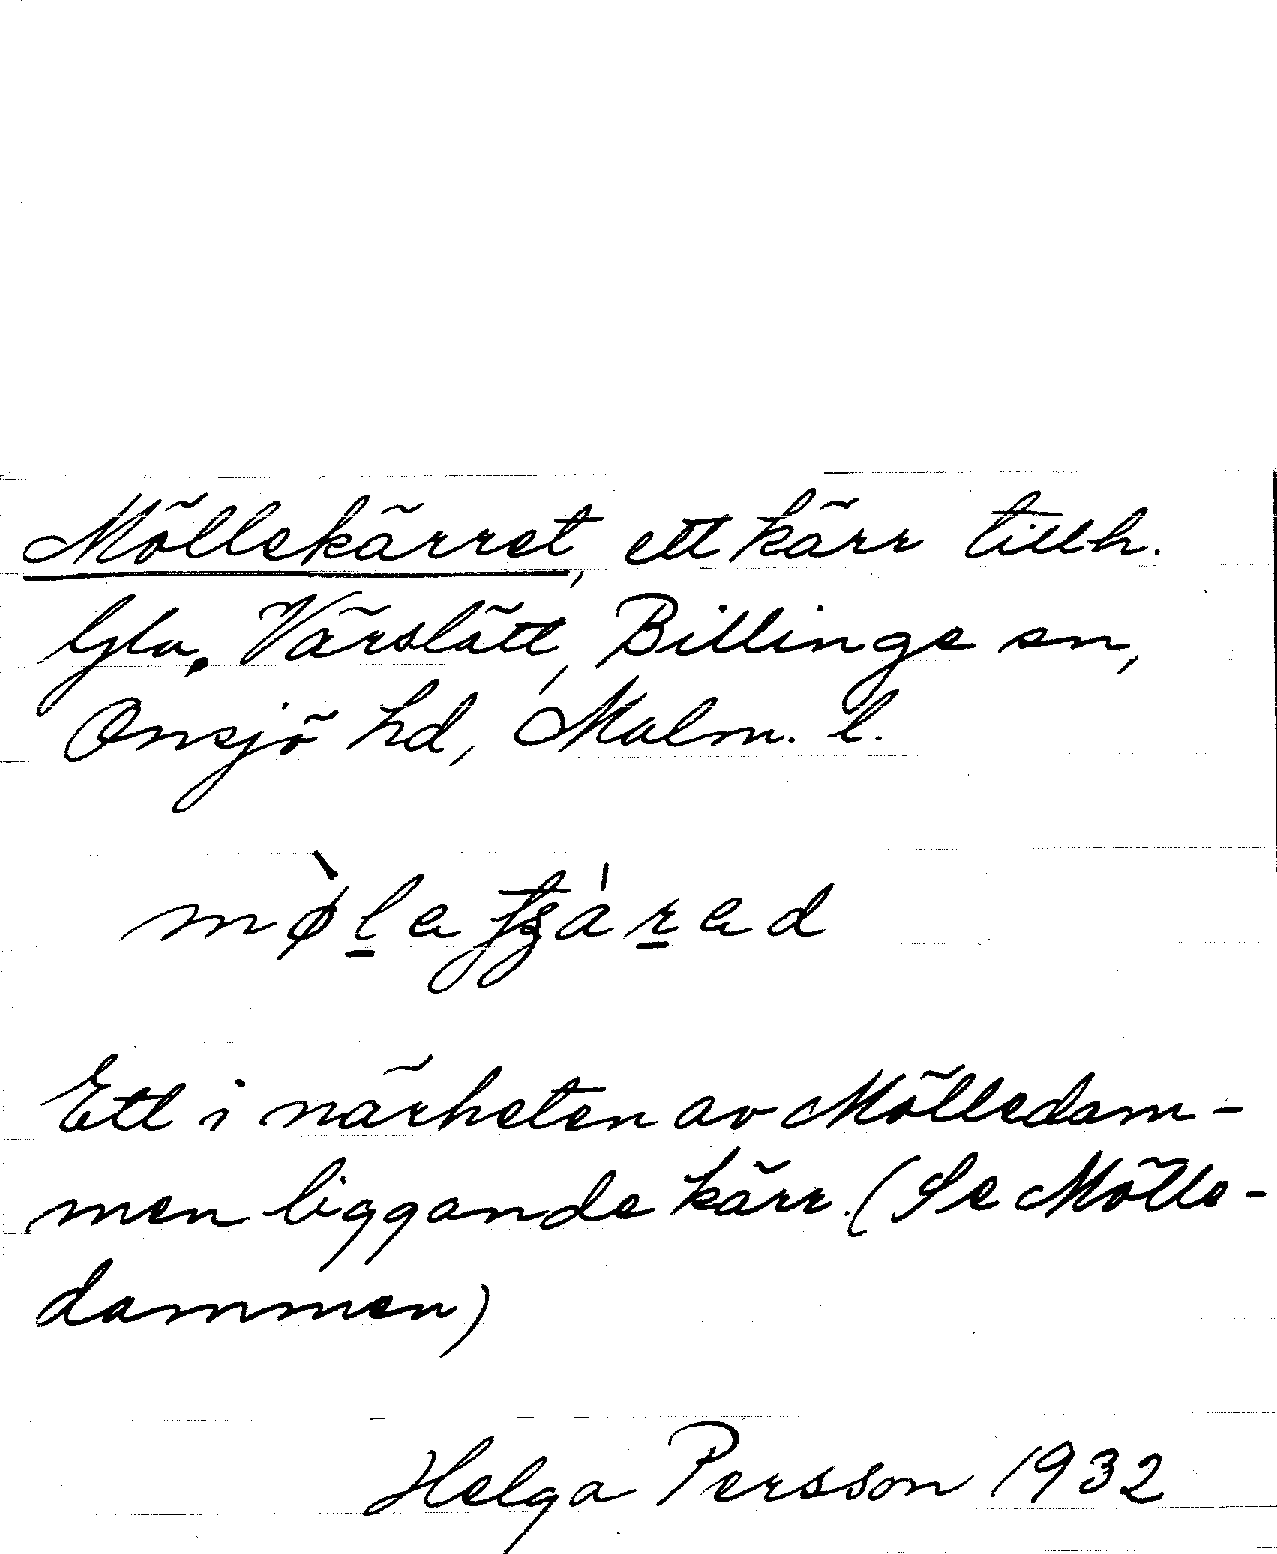 Möllekärret, ett kärr tillh.
Gla. Värslätt, Billinge sn,
Onsjö hd, Malm. l.
Ett i närheten av Mölledam-
men liggande kärr. (Se Mölle-
dammen)
Helga Persson 1932